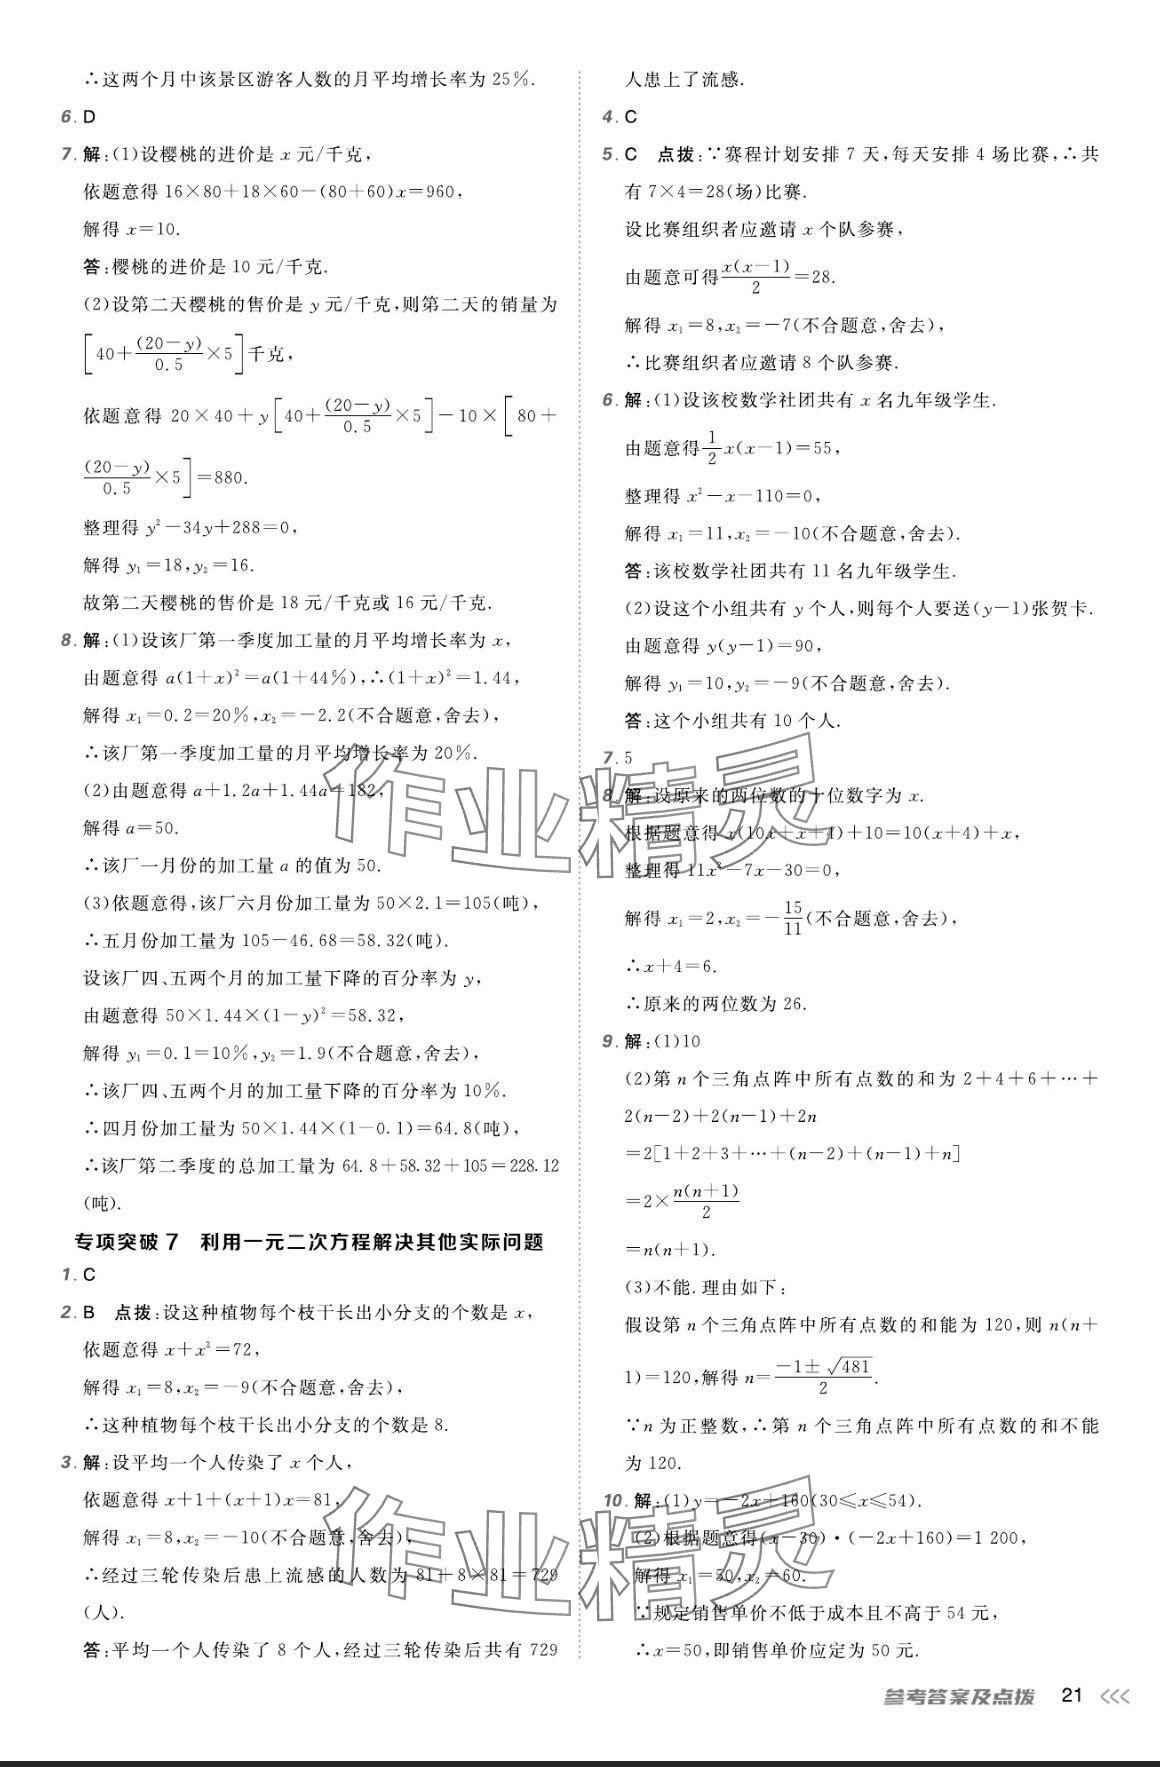 ∴这两个月中该景区游客人数的月平均增长率为 25%.
6. D
7. 解:(1)设樱桃的进价是 x 元/千克,
依题意得 16×80+18×60-(80+60)x=960,
解得 x=10.
答:樱桃的进价是 10 元/千克.
(2)设第二天樱桃的售价是 y 元/千克,则第二天的销量为
[40+(20-y)/0.5×5]千克,
依题意得 20×40+y[40+(20-y)/0.5×5]-10×[80+
(20-y)/0.5×5]=880.
整理得 y²-34y+288=0,
解得 y₁=18,y₂=16.
故第二天樱桃的售价是 18 元/千克或 16 元/千克.
8. 解:(1)设该厂第一季度加工量的月平均增长率为 x,
由题意得 a(1+x)²=a(1+44%),∴(1+x)²=1.44,
解得 x₁=0.2=20%,x₂=-2.2(不合题意,舍去),
∴该厂第一季度加工量的月平均增长率为 20%.
(2)由题意得 a+1.2a+1.44a=182,
解得 a=50.
∴该厂一月份的加工量 a 的值为 50.
(3)依题意得,该厂六月份加工量为 50×2.1=105(吨),
∴五月份加工量为 105-46.68=58.32(吨).
设该厂四、五两个月的加工量下降的百分率为 y,
由题意得 50×1.44×(1-y)²=58.32,
解得 y₁=0.1=10%,y₂=1.9(不合题意,舍去),
∴该厂四、五两个月的加工量下降的百分率为 10%.
∴四月份加工量为 50×1.44×(1-0.1)=64.8(吨),
∴该厂第二季度的总加工量为 64.8+58.32+105=228.12
(吨).
专项突破 7 利用一元二次方程解决其他实际问题
1. C
2. B 点拨:设这种植物每个枝干长出小分支的个数是 x,
依题意得 x+x²=72,
解得 x₁=8,x₂=-9(不合题意,舍去),
∴这种植物每个枝干长出小分支的个数是 8.
3. 解:设平均一个人传染了 x 个人,
依题意得 x+1+(x+1)x=81,
解得 x₁=8,x₂=-10(不合题意,舍去),
∴经过三轮传染后患上流感的人数为 81+8×81=729
(人).
答:平均一个人传染了 8 个人,经过三轮传染后共有 729
人患上了流感.
4. C
5. C 点拨:∵赛程计划安排 7 天,每天安排 4 场比赛,∴共
有 7×4=28(场)比赛.
设比赛组织者应邀请 x 个队参赛,
由题意可得x(x-1)/2=28.
解得 x₁=8,x₂=-7(不合题意,舍去),
∴比赛组织者应邀请 8 个队参赛.
6. 解:(1)设该校数学社团共有 x 名九年级学生.
由题意得1/2x(x-1)=55,
整理得 x²-x-110=0,
解得 x₁=11,x₂=-10(不合题意,舍去).
答:该校数学社团共有 11 名九年级学生.
(2)设这个小组共有 y 个人,则每个人要送(y-1)张贺卡.
由题意得 y(y-1)=90,
解得 y₁=10,y₂=-9(不合题意,舍去).
答:这个小组共有 10 个人.
7. 5
8. 解:设原来的两位数的十位数字为 x.
根据题意得 x(10x+x+4)+10=10(x+4)+x,
整理得 11x²-7x-30=0,
解得 x₁=2,x₂=-15/11(不合题意,舍去),
∴x+4=6.
∴原来的两位数为 26.
9. 解:(1)10
(2)第 n 个三角点阵中所有点数的和为 2+4+6+⋯+
2(n-2)+2(n-1)+2n
=2[1+2+3+⋯+(n-2)+(n-1)+n]
=2×n(n+1)/2
=n(n+1).
(3)不能.理由如下:
假设第 n 个三角点阵中所有点数的和能为 120,则 n(n+
1)=120,解得 n=(-1±√481)/2.
∵n 为正整数,∴第 n 个三角点阵中所有点数的和不能
为 120.
10. 解:(1)y=-2x+160(30≤x≤54).
(2)根据题意得(x-30)·(-2x+160)=1 200,
解得 x₁=50,x₂=60.
∵规定销售单价不低于成本且不高于 54 元,
∴x=50,即销售单价应定为 50 元.
作业精灵
作业精灵
参考答案及点拨 21 <<<